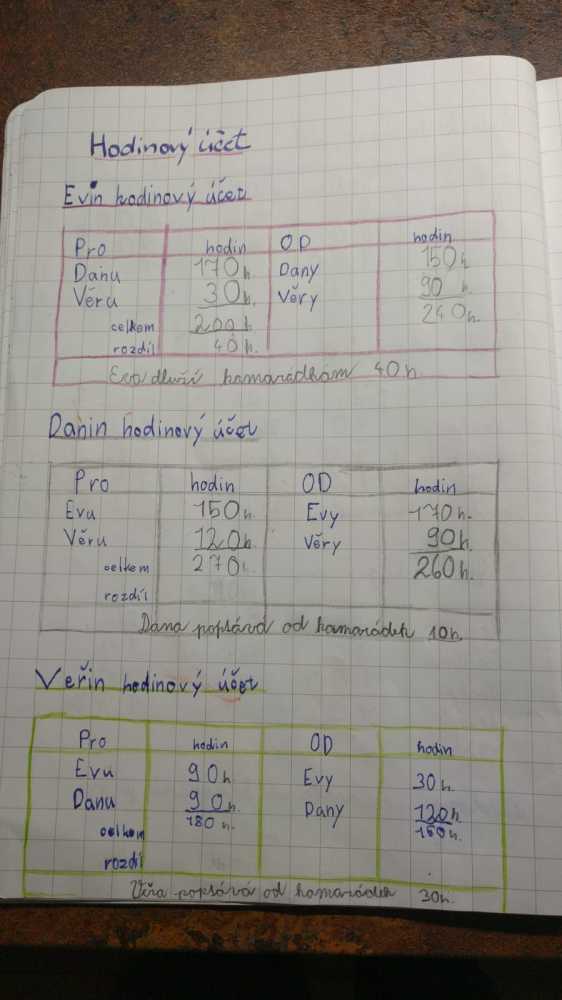 Hodinový účet
Evin hodinový účet
Pro hodin OD hodin
Danu 170h. Dany 150h
Věru 30h. Věry 90 h.
celkem 200h 240h.
rozdíl 40h.
Eva dluží kamarádkám 40h.
Danin hodinový účet
Pro hodin OD hodin
Evu 150h. Evy 170h.
Věru 120h. Věry 90h.
celkem 270h. 260h.
rozdíl
Dana popsává od kamarádek 10h.
Veřin hodinový účet
Pro hodin OD hodin
Evu 90h. Evy 30h.
Danu 90h. Dany 120h
celkem 180h. 150h.
rozdíl
Věra popsává od kamarádek 30h.